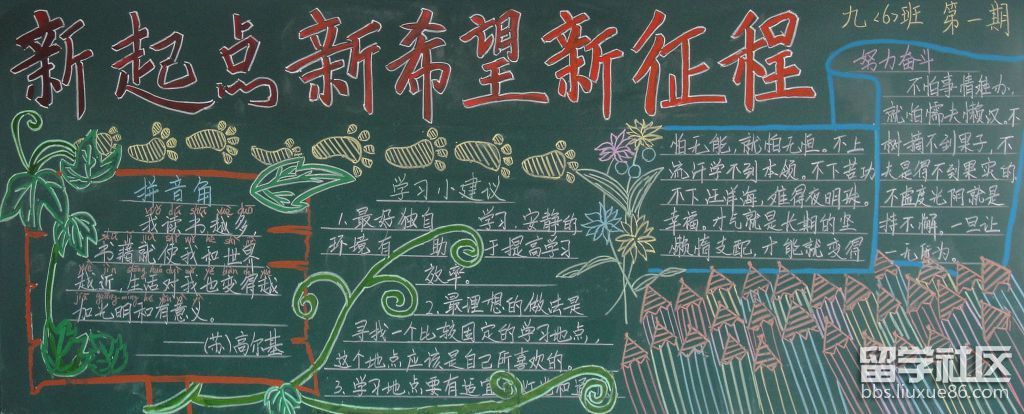 新起点新希望新征程
九<6>班 第一期
拼音角
我读书越多
书籍就使我和世界
越近,生活对我也变得越
加光明和有意义。
——(苏)高尔基
学习小建议
1.最好独自 学习 安静的
环境有 助 于提高学习
效率。
2.最理想的做法是
寻找一个比较固定的学习地点,
这个地点应该是自己所喜欢的。
3.学习地点要有适宜
怕无能,就怕无恒。不上
流汗学不到本领。不下苦功
不下汪洋海,难得夜明珠。
幸福。才气就是长期的坚
懒惰支配,才能就变得
努力奋斗
不怕事情难办,
就怕懦夫懒汉。不
树摘不到果子,不
夫是得不到果实的。
不虚度光阴就是
持不懈,一旦让
一无所为。
留学社区
bbs.liuxue86.com